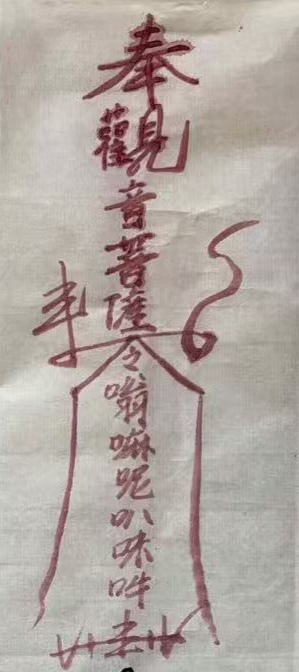 奉
觀
音
菩
薩
令
嗡
嘛
呢
叭
咪
吽